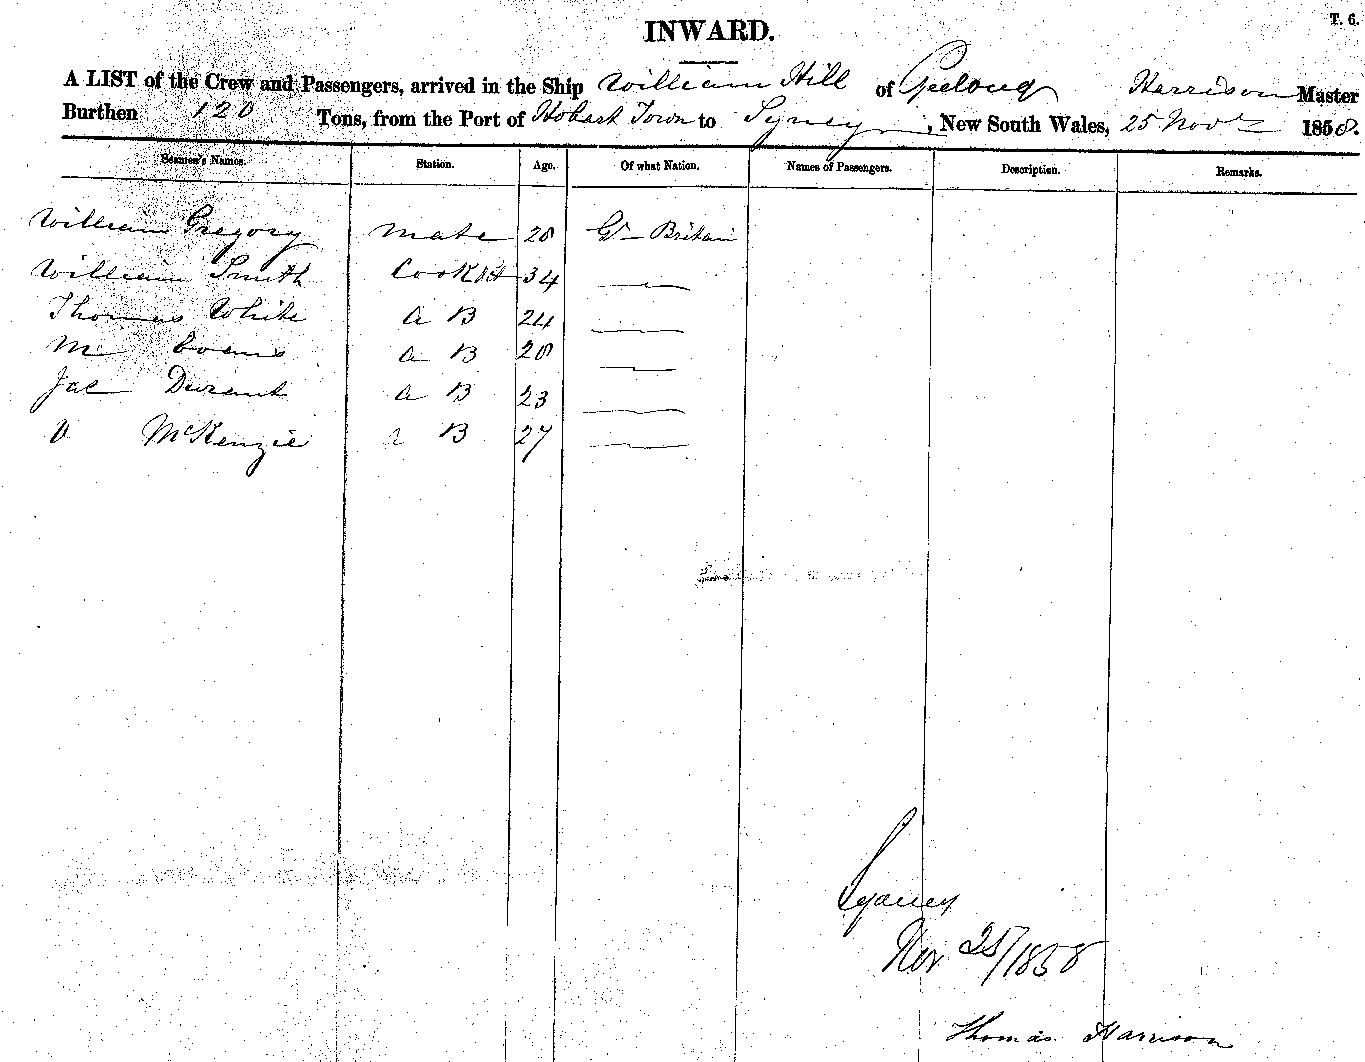 T. 6.
INWARD.
A LIST of the Crew and Passengers, arrived in the Ship William Hill of Geelong Harrison Master
Burthen 120 Tons, from the Port of Hobart Town to Sydney, New South Wales, 25 Novr 1858.
Seamen's Names. Station. Age. Of what Nation. Names of Passengers. Description. Remarks.
William Gregory mate 28 Gt Britain
William Smith Cook &c 34
Thomas White a B 24
Evans a B 28
Jac Durant a B 23
McKenzie a B 27
Sydney
Nov. 25/1858
Thomas Harrison